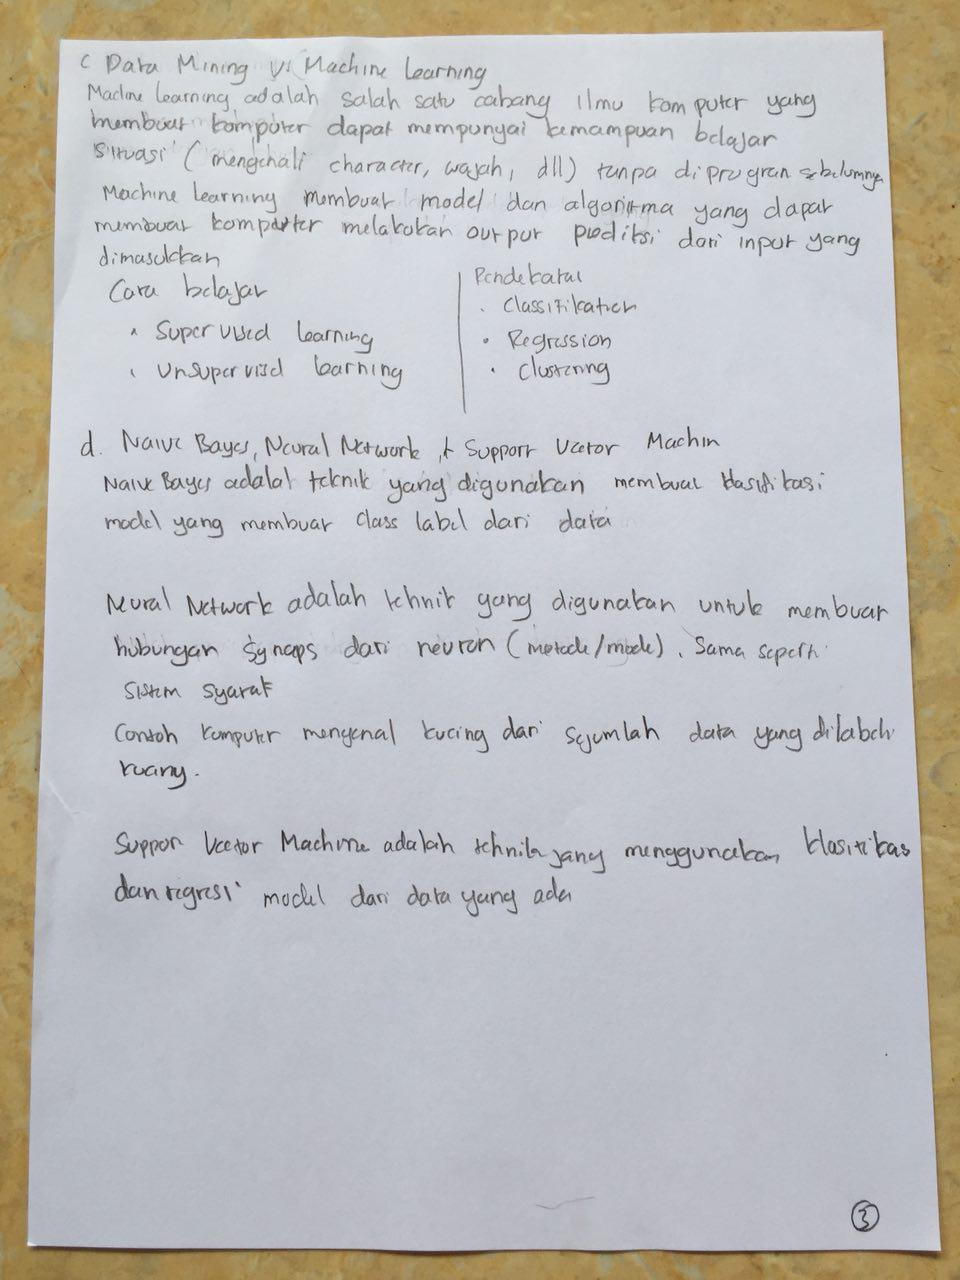 c Data Mining vs Machine Learning
Machine Learning adalah salah satu cabang ilmu komputer yang
membuat komputer dapat mempunyai kemampuan belajar
situasi (mengenali character, wajah, dll) tanpa diprogram sebelumnya
Machine Learning membuat model dan algoritma yang dapat
membuat komputer melakukan output prediksi dari input yang
dimasukkan
Cara belajar
• Supervised learning
• Unsupervised learning
Pendekatan
• Classification
• Regression
• Clustering
d. Naive Bayes, Neural Network, & Support Vector Machin
Naive Bayes adalah teknik yang digunakan membuat klasifikasi
model yang membuat class label dari data
Neural Network adalah tehnik yang digunakan untuk membuat
hubungan synaps dari neuron (metode/mode). Sama seperti
sistem syaraf
Contoh komputer mengenal kucing dari sejumlah data yang dilabeli
kucing.
Suppor Vector Machine adalah tehnik yang menggunakan klasifikas
dan regresi model dari data yang ada
3